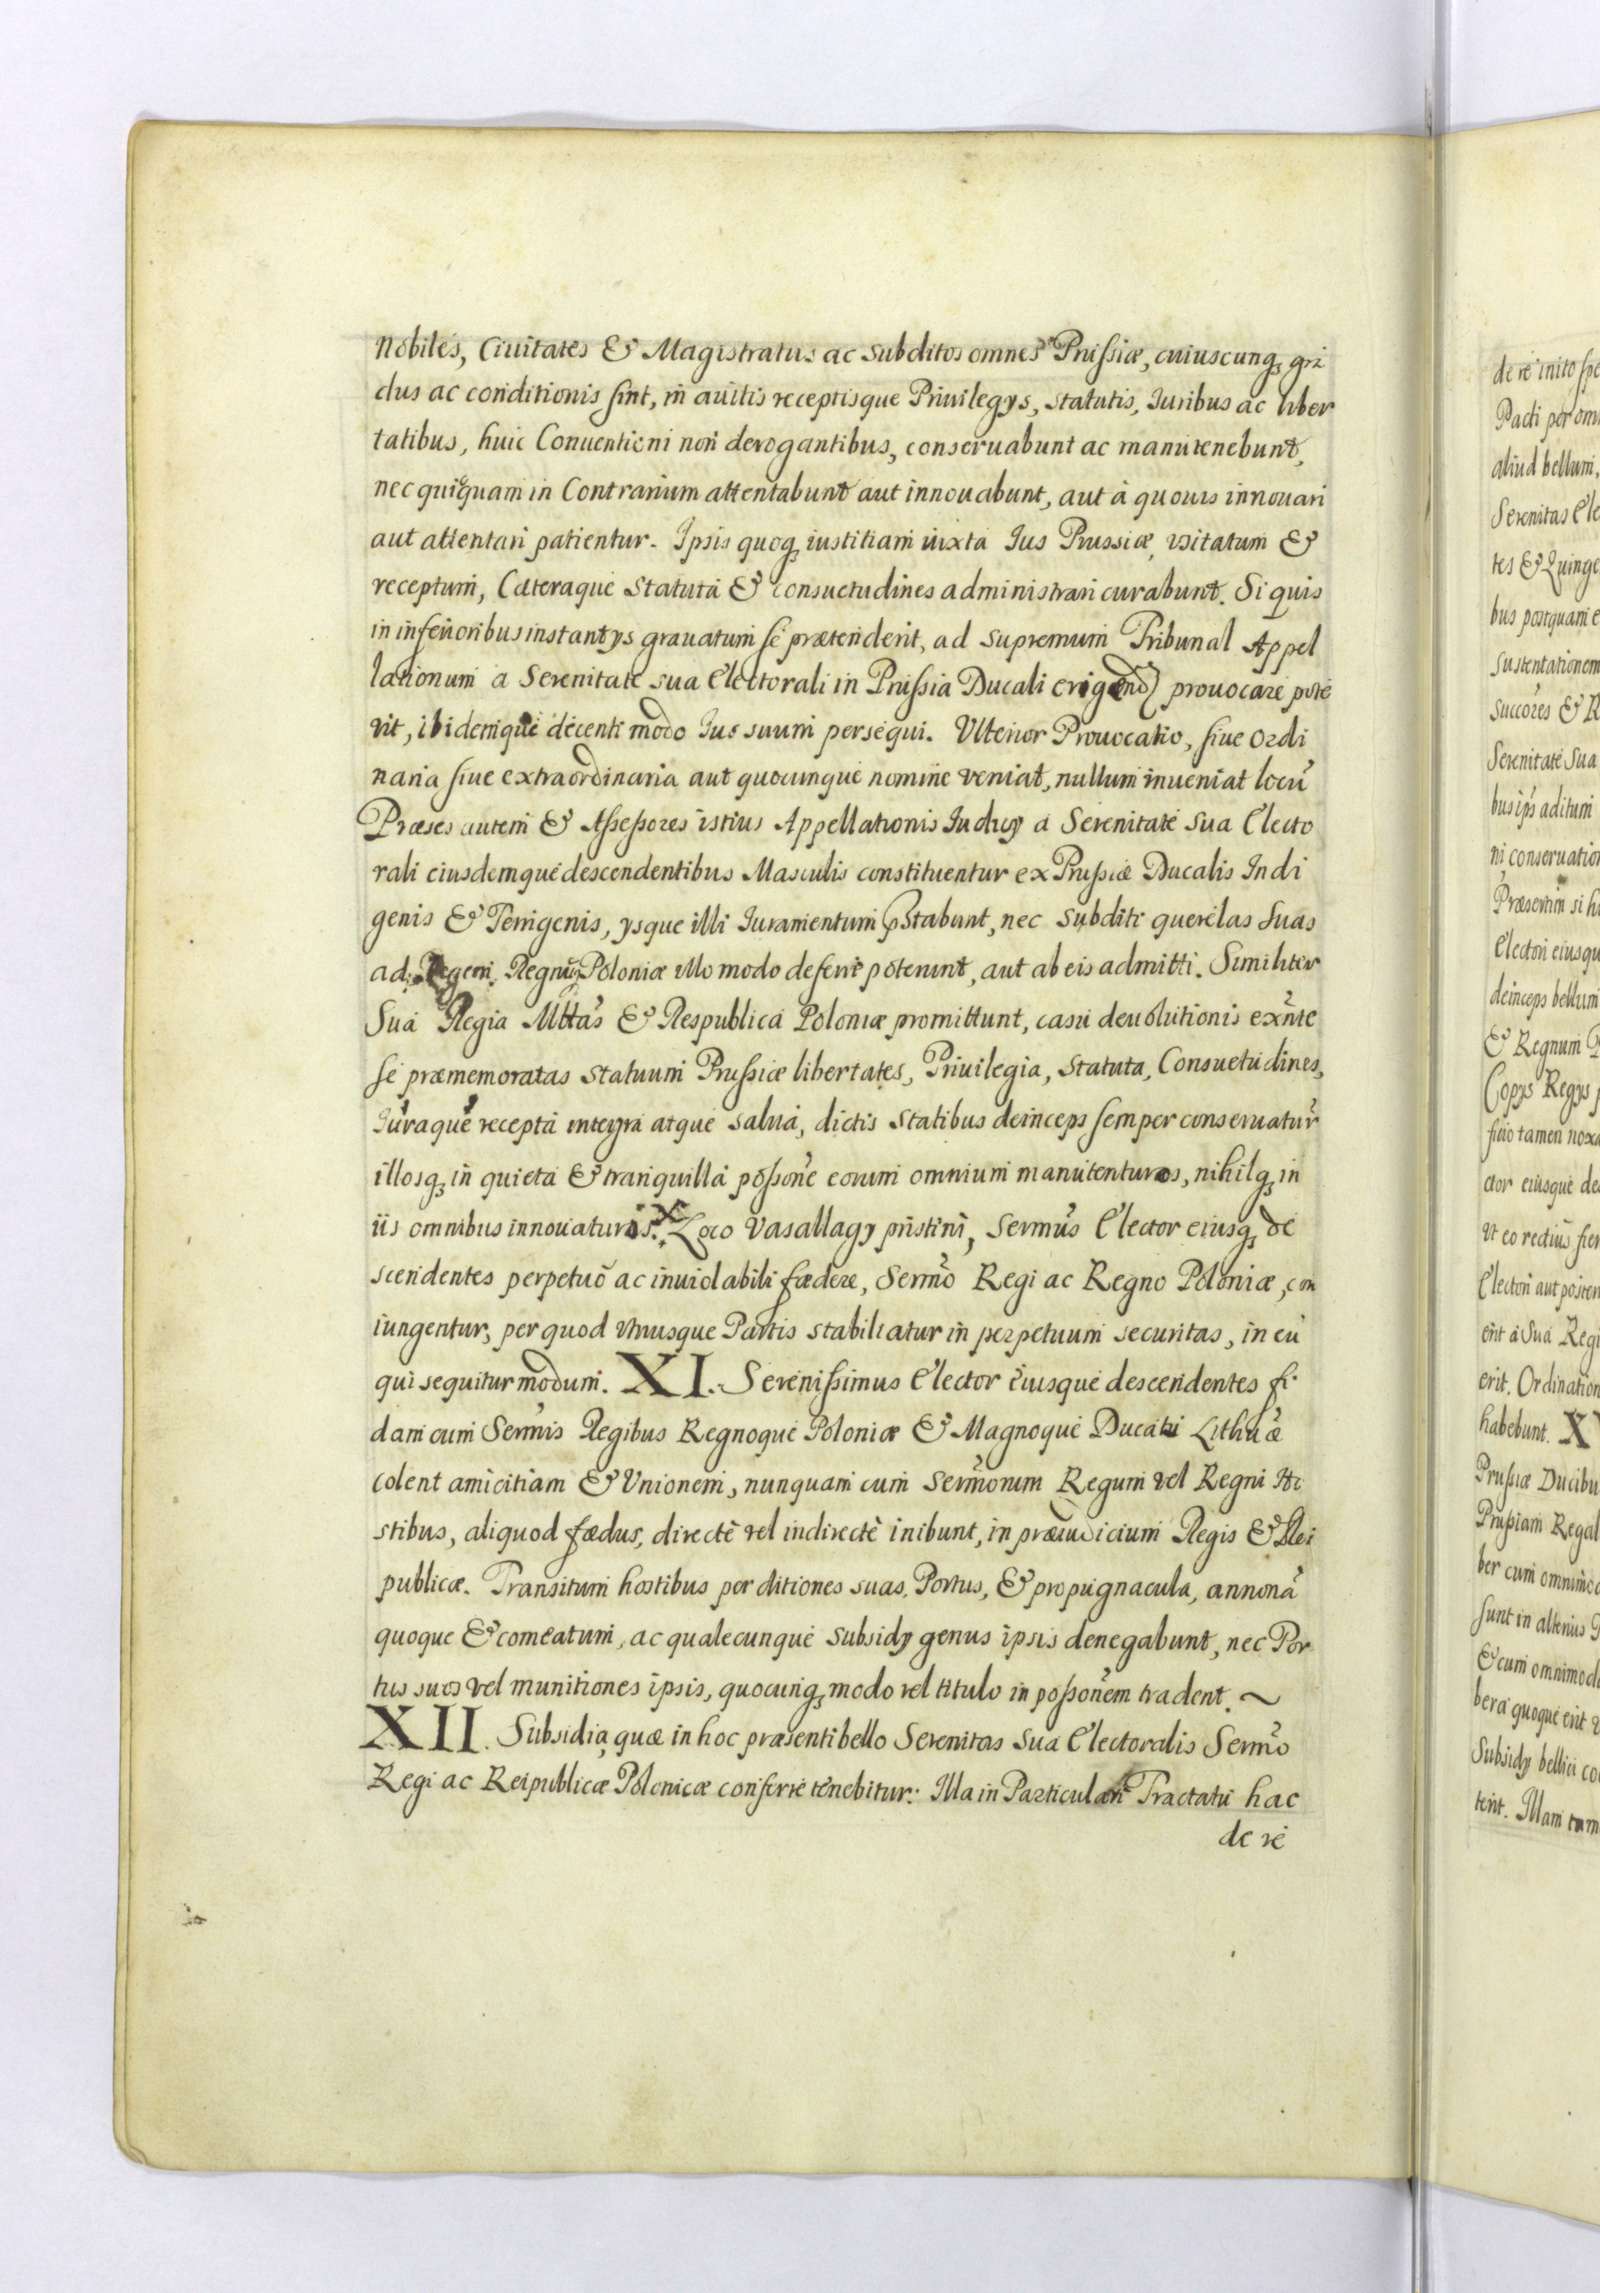 Nobiles, Ciuitates & Magistratus ac subditos omnes Prussiæ, cuiuscunq; gra
dus ac conditionis sint, in auitis receptisque Priuilegys, statutis, Iuribus ac liber
tatibus, huic Conuentioni non derogantibus, conseruabunt ac manutenebunt,
nec quicquam in Contrarium attentabunt aut innouabunt, aut à quouis innouari
aut attentari patientur. Ipsis quoq; iustitiam iuxta Ius Prussiæ, vsitatum &
receptum, Cæteraque statuta & consuetudines administrari curabunt. Si quis
in inferioribus instantys grauatum se prætenderit, ad supremum Tribunal Appel
lationum a Serenitate sua Electorali in Prussia Ducali erigend prouocare pote
rit, ibidemque decenti modo Ius suum persequi. Vlterior Prouocatio, siue ordi
naria siue extraordinaria aut quocunque nomine veniat, nullum inueniat locũ
Præses autem & Assessores istius Appellationis Iudicy a Serenitate sua Electo
rali eiusdemque descendentibus Masculis constituentur ex Prussiæ Ducalis Indi
genis & Terrigenis, ysque illi Iuramentum p̃stabunt, nec subditi querelas suas
ad Regem, Regnũq; Poloniæ vllo modo deferre poterunt, aut ab eis admitti. Similiter
Sua Regia Mttas & Respublica Poloniæ promittunt, casu deuolutionis exñte
se præmemoratas statuum Prussiæ libertates, Priuilegia, statuta, Consuetudines,
Iuraque recepta integra atque salua, dictis statibus deinceps semper conseruatur
illosq; in quieta & tranquilla possone eorum omnium manutenturos, nihilq; in
iis omnibus innouaturos. X. Loco Vasallagy pristini, Sermus Elector eiusq; de
scendentes perpetuo ac inuiolabili fædere, Sermo Regi ac Regno Poloniæ, con
iungentur, per quod vtriusque Partis stabiliatur in perpetuum securitas, in eũ
qui sequitur modum. XI. Serenissimus Elector eiusque descendentes fi
dam cum Sermis Regibus Regnoque Poloniæ & Magnoque Ducatu Lithuæ
colent amicitiam & Vnionem, nunquam cum sermorum Regum vel Regni Ho
stibus, aliquod fædus, directè vel indirectè inibunt, in præiudicium Regis & Rei
publicæ. Transitum hostibus per ditiones suas, Portus, & propugnacula, annonã
quoque & comeatum, ac qualecunque subsidy genus ipsis denegabunt, nec Por
tus suos vel munitiones ipsis, quocunq; modo vel titulo in possonem tradent. ~
XII. Subsidia quæ in hoc præsenti bello Serenitas sua Electoralis Sermo
Regi ac Reipublicæ Polonicæ conferre tenebitur: Illa in Particulari Tractatu hac
de re
de re inito
Pacti per
aliud bellum,
Serenitas
tes &
bus postquam
sustentationem
& R
Serenitate Sua
bus ips aditum
ni
Præsertim si
Electori
deinceps bellum
& Regnum
Copys Regys
tamen
ctor eiusque
Vt eo rectius
Electori aut
erit à Sua
erit. Ordination
habebunt.
Prussiæ Ducibu
Prussiam Regal
ber cum
sunt in alterius
& cum
bera quoque erit
Subsidy bellici
terit. Illam